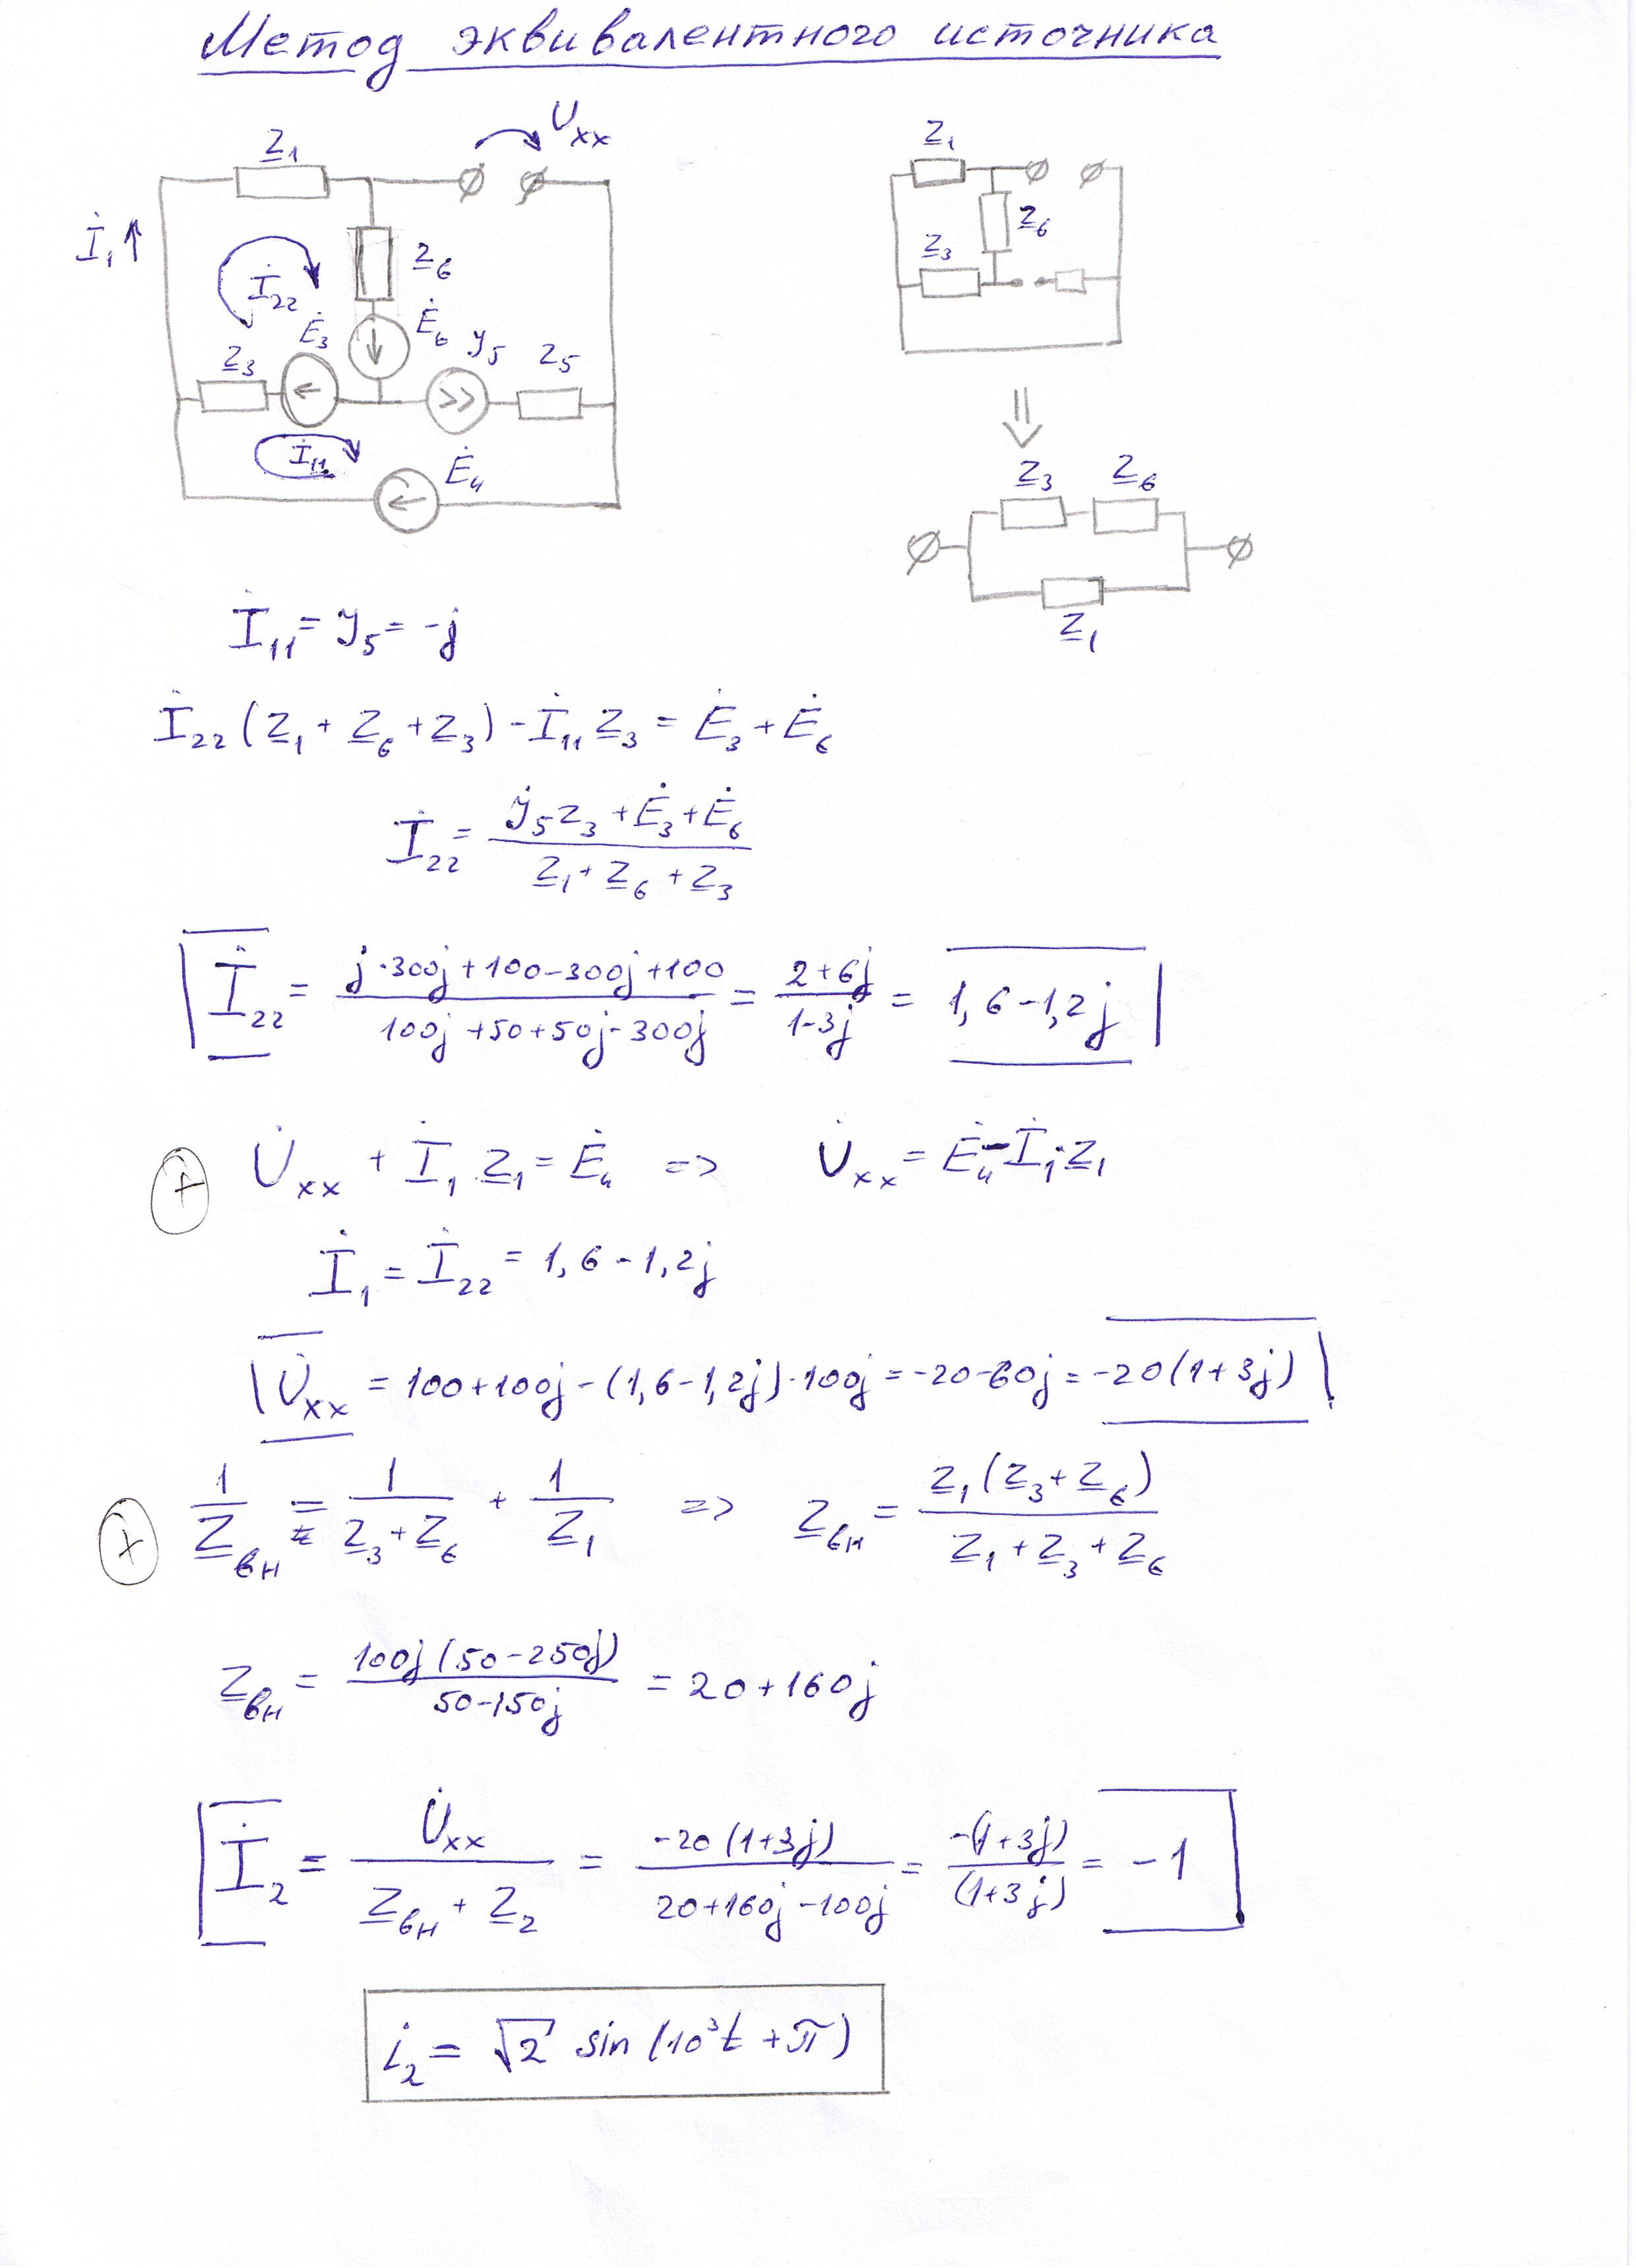 Метод эквивалентного источника
U̇xx
Z1
İ1↑
Z6
İ22
Ė3
Ė6
У5
Z3
Z5
İ11
Ė4
Z1
Z6
Z3
⇓
Z3 Z6
Z1
İ11 = У5 = -j
İ22 (Z1 + Z6 + Z3) - İ11 Z3 = Ė3 + Ė6
İ22 = (У̇5 Z3 + Ė3 + Ė6) / (Z1 + Z6 + Z3)
İ22 = (j·300j + 100 - 300j + 100) / (100j + 50 + 50j - 300j) = (2+6j) / (1-3j) = 1,6 - 1,2j
+ U̇xx + İ1 Z1 = Ė4 => U̇xx = Ė4 - İ1·Z1
İ1 = İ22 = 1,6 - 1,2j
U̇xx = 100 + 100j - (1,6 - 1,2j)·100j = -20 - 60j = -20(1+3j)
+ 1/Zвн = 1/(Z3 + Z6) + 1/Z1 => Zвн = Z1(Z3 + Z6) / (Z1 + Z3 + Z6)
Zвн = 100j(50 - 250j) / (50 - 150j) = 20 + 160j
İ2 = U̇xx / (Zвн + Z2) = -20(1+3j) / (20 + 160j - 100j) = -(1+3j) / (1+3j) = -1
i2 = √2 sin (10³t + π)